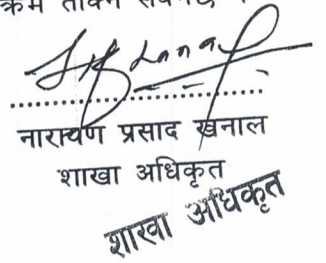 क्रम
नारायण प्रसाद खनाल
शाखा अधिकृत
शाखा अधिकृत